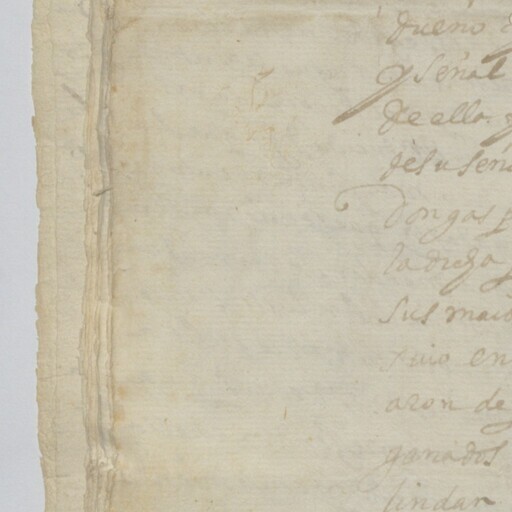 dueño
y señal
de ello y
de su seño
Don gas
la dicha
sus maio
en
aron de
ganados
lindar